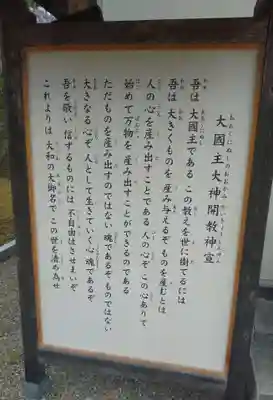 大國主大神開教神宣
吾は 大國主である この教えを世に樹てるには
吾は 大きくものを 産み与えるぞ ものを産むとは
人の心を産み出すことである 人の心ぞ この心ありて
始めて万物を 産み出すことができるのである
ただものを 産み出すのではない 魂であるぞ ものではない
大きなる心ぞ 人として生きていく心魂であるぞ
吾を敬い 信ずるものには 不自由はさせまいぞ
これよりは 大和の大御名で この世を漬め為せ